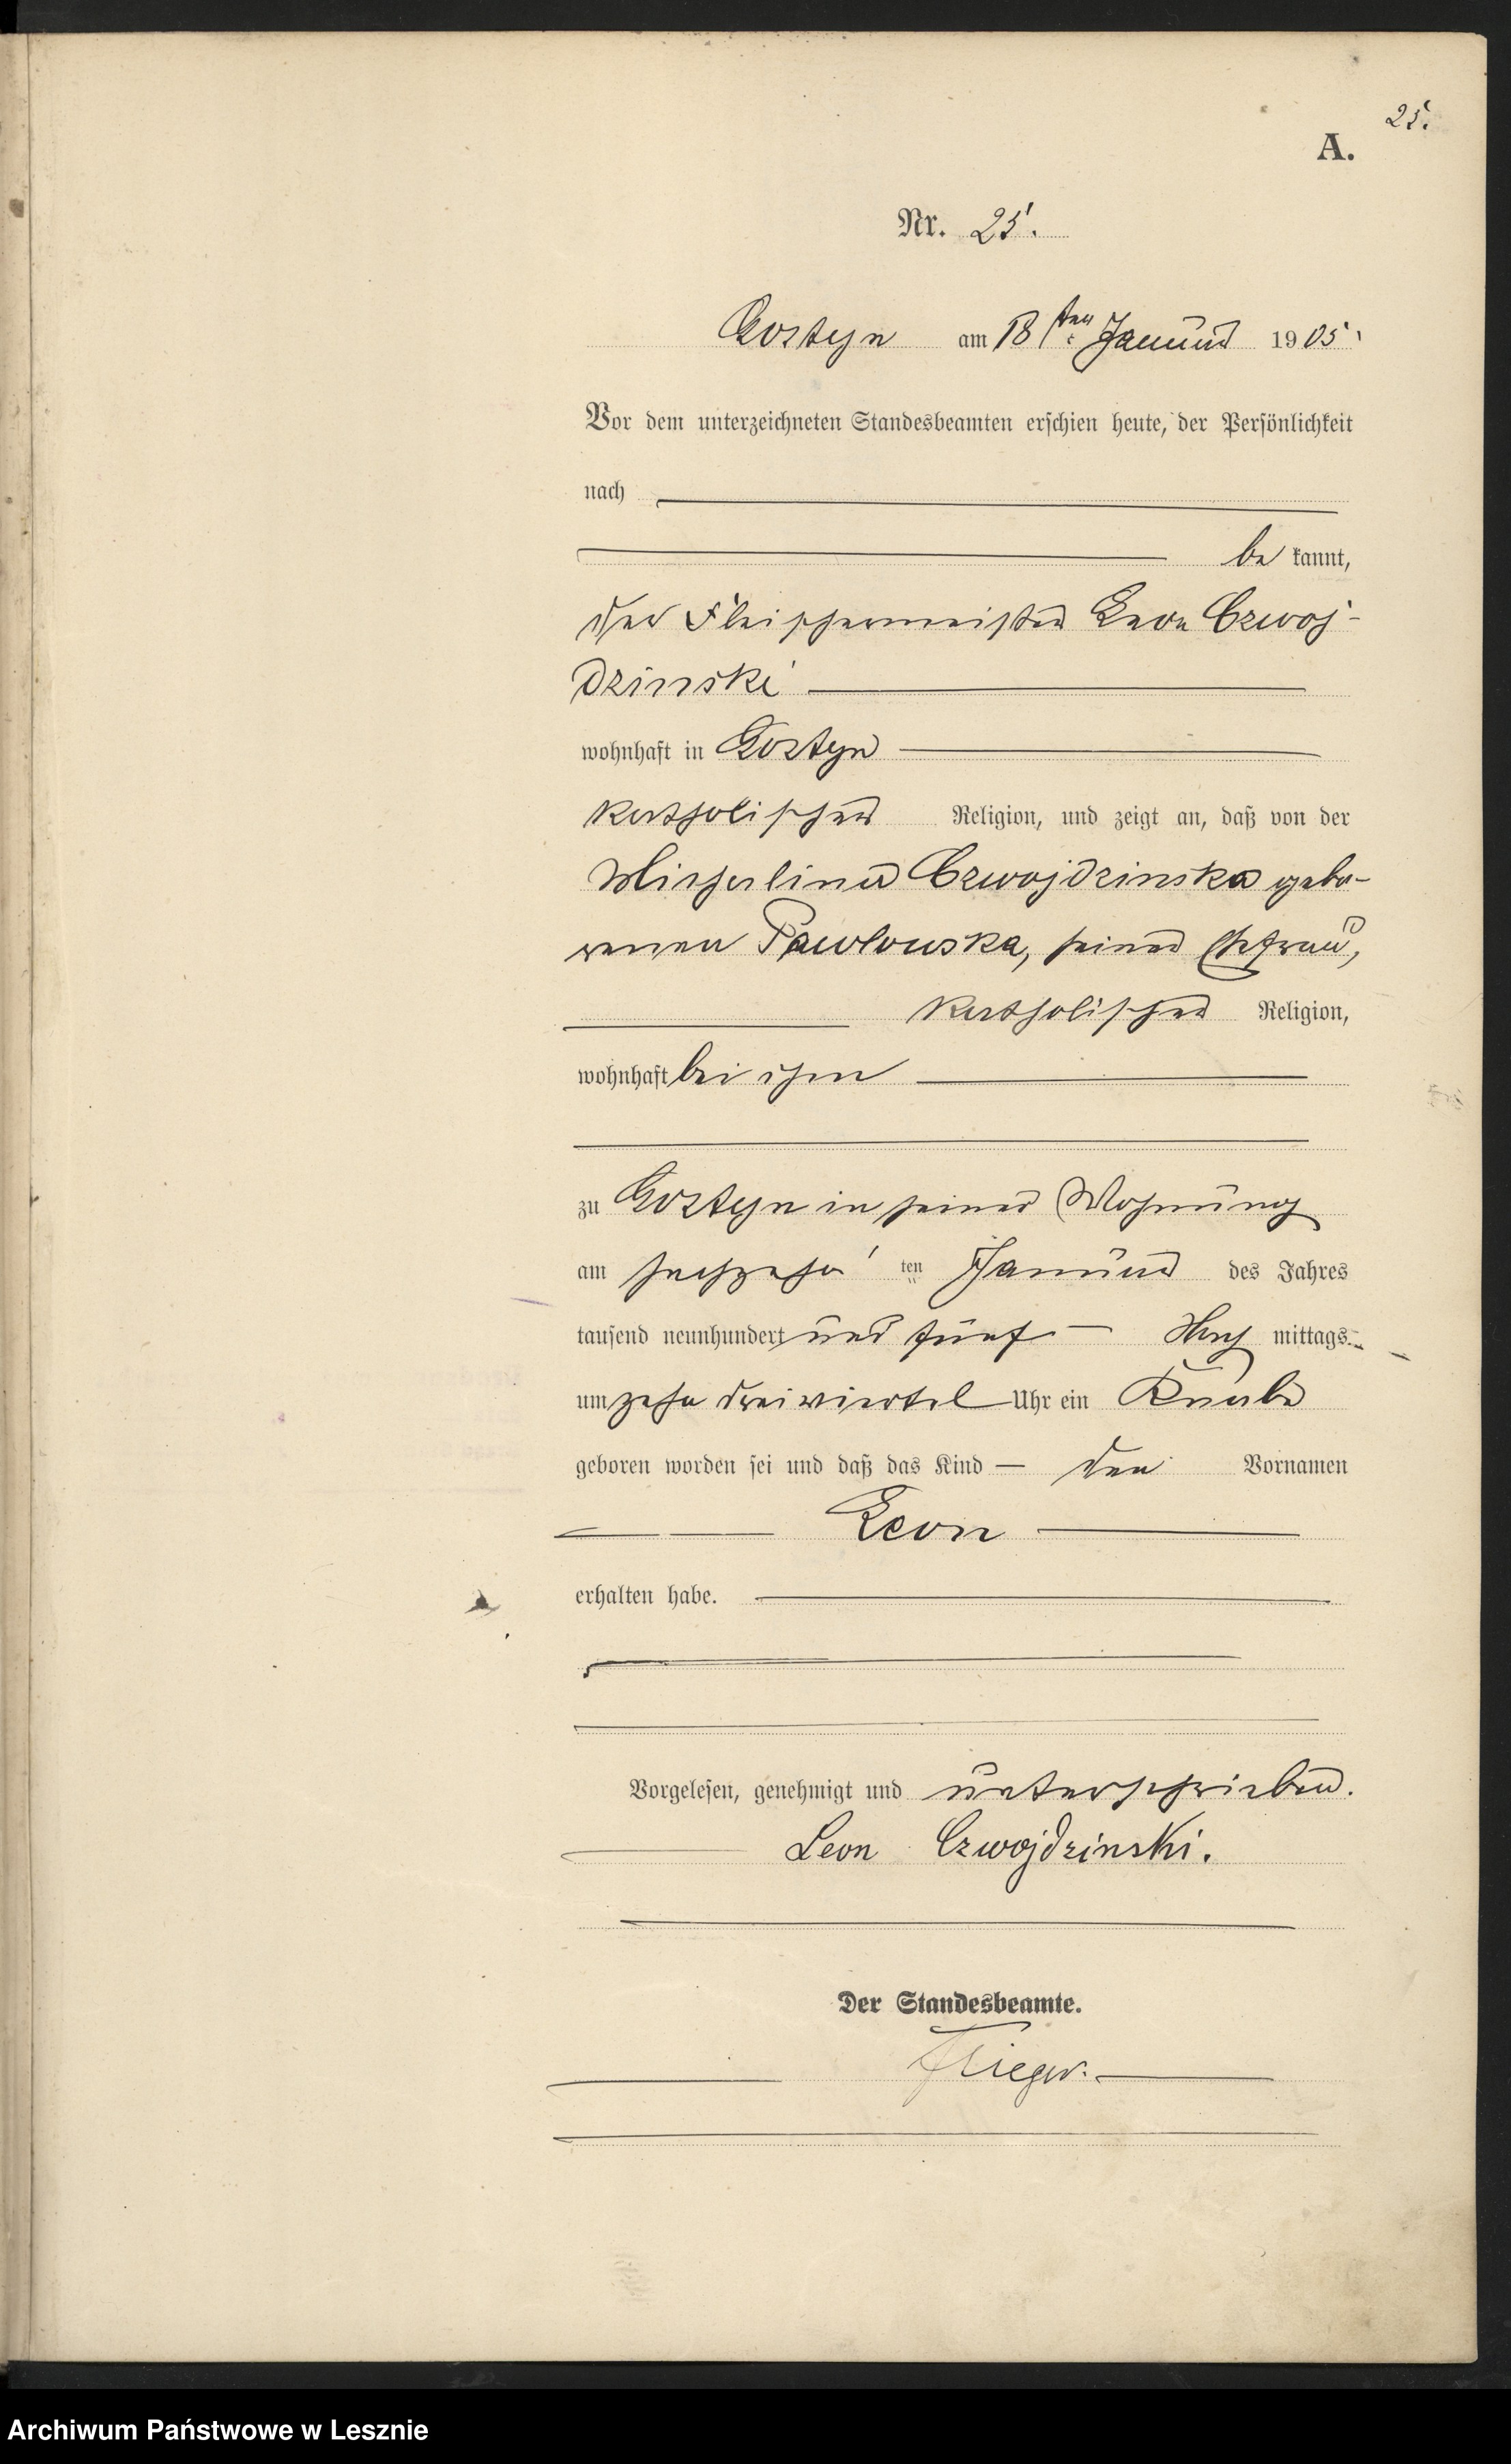 25.
A.
Nr. 25.
Gostyn am 18ten Januar 1905.
Vor dem unterzeichneten Standesbeamten erschien heute, der Persönlichkeit
nach
be kannt,
der Fleischermeister Leon Czwoj-
dzinski
wohnhaft in Gostyn
katholischer Religion, und zeigt an, daß von der
Michalina Czwojdzinska gebo-
renen Pawlowska, seiner Ehefrau,
katholischer Religion,
wohnhaft bei ihm
zu Gostyn in seiner Wohnung
am sechzehn ten Januar des Jahres
tausend neunhundert und fünf Nach mittags
um zehn dreiviertel Uhr ein Knabe
geboren worden sei und daß das Kind den Vornamen
Leon
erhalten habe.
Vorgelesen, genehmigt und unterschrieben.
Leon Czwojdzinski.
Der Standesbeamte.
Archiwum Państwowe w Lesznie